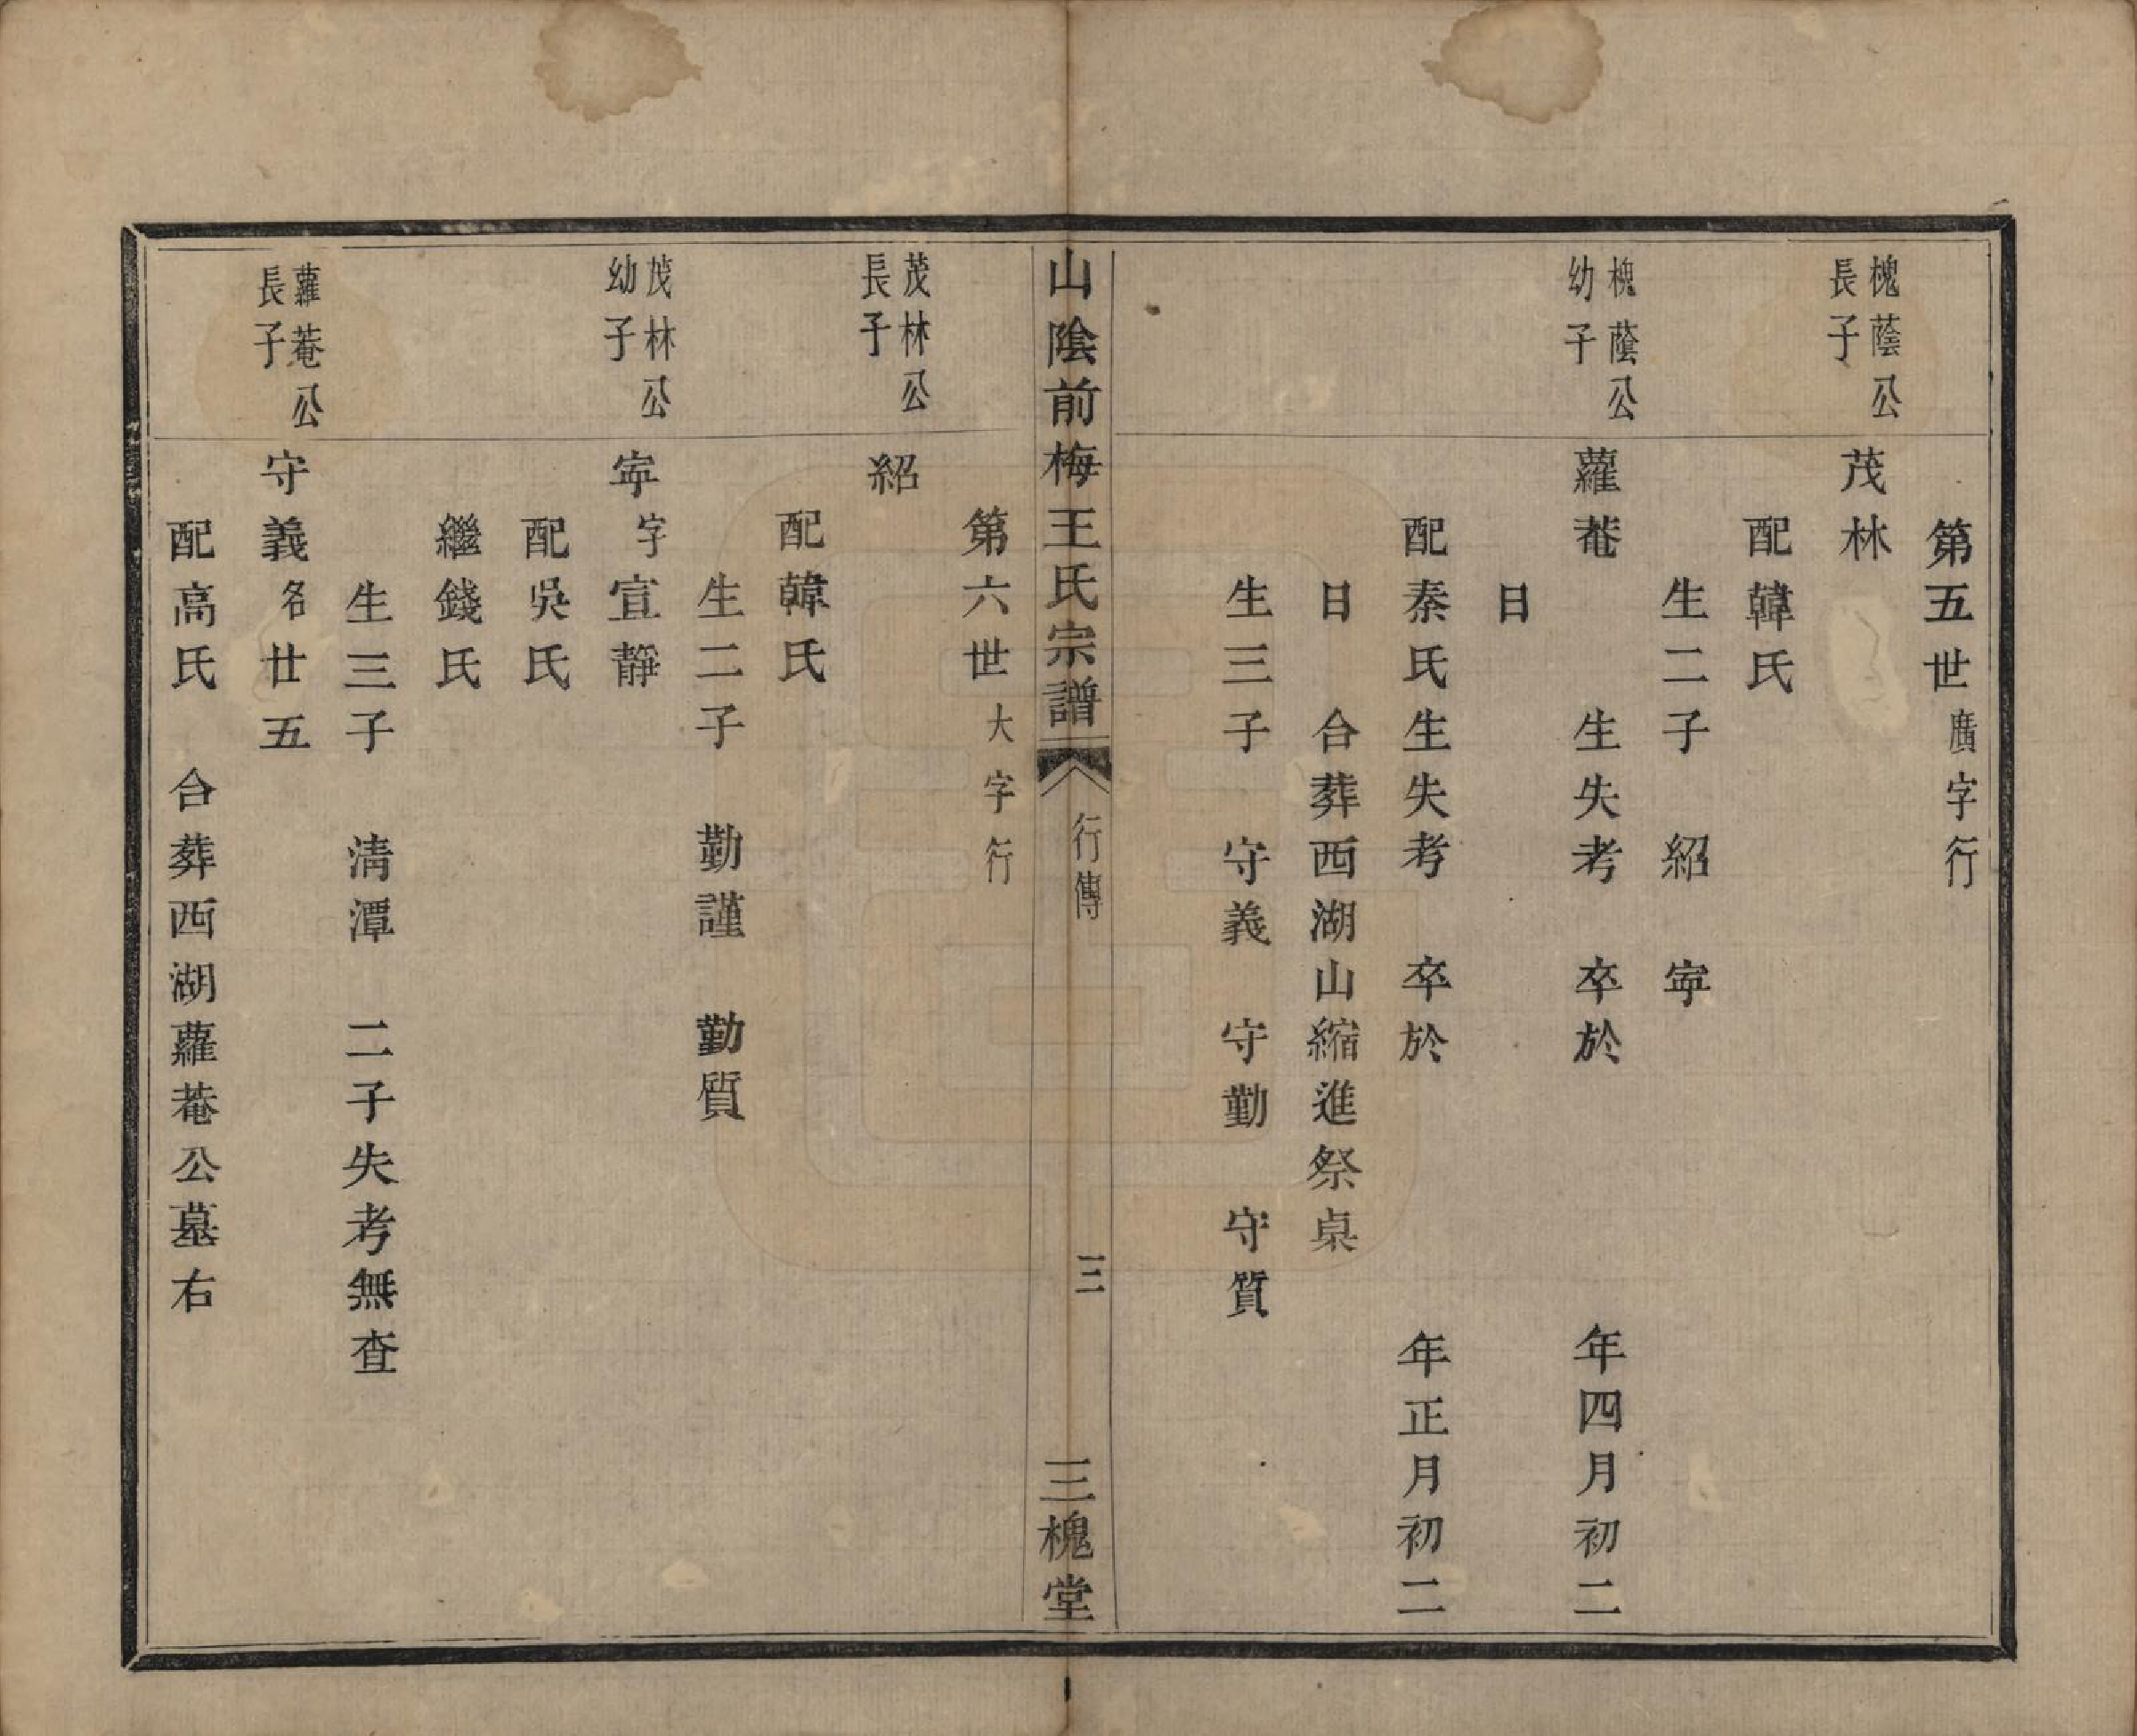 第五世廣字行
槐蔭公
長子
茂林
配韓氏
生二子 紹 寕
槐蔭公
幼子
蘿菴 生失考 卒於 年四月初二
日
配秦氏生失考 卒於 年正月初二
日 合葬西湖山縮進祭桌
生三子 守義 守勤 守質
山陰前梅王氏宗譜 行傳 三 三槐堂
第六世大字行
茂林公
長子
紹
配韓氏
生二子 勤謹 勤質
茂林公
幼子
寕字宣靜
配吳氏
繼錢氏
生三子 清潭 二子失考無查
蘿菴公
長子
守義名廿五
配高氏 合葬西湖蘿菴公墓右